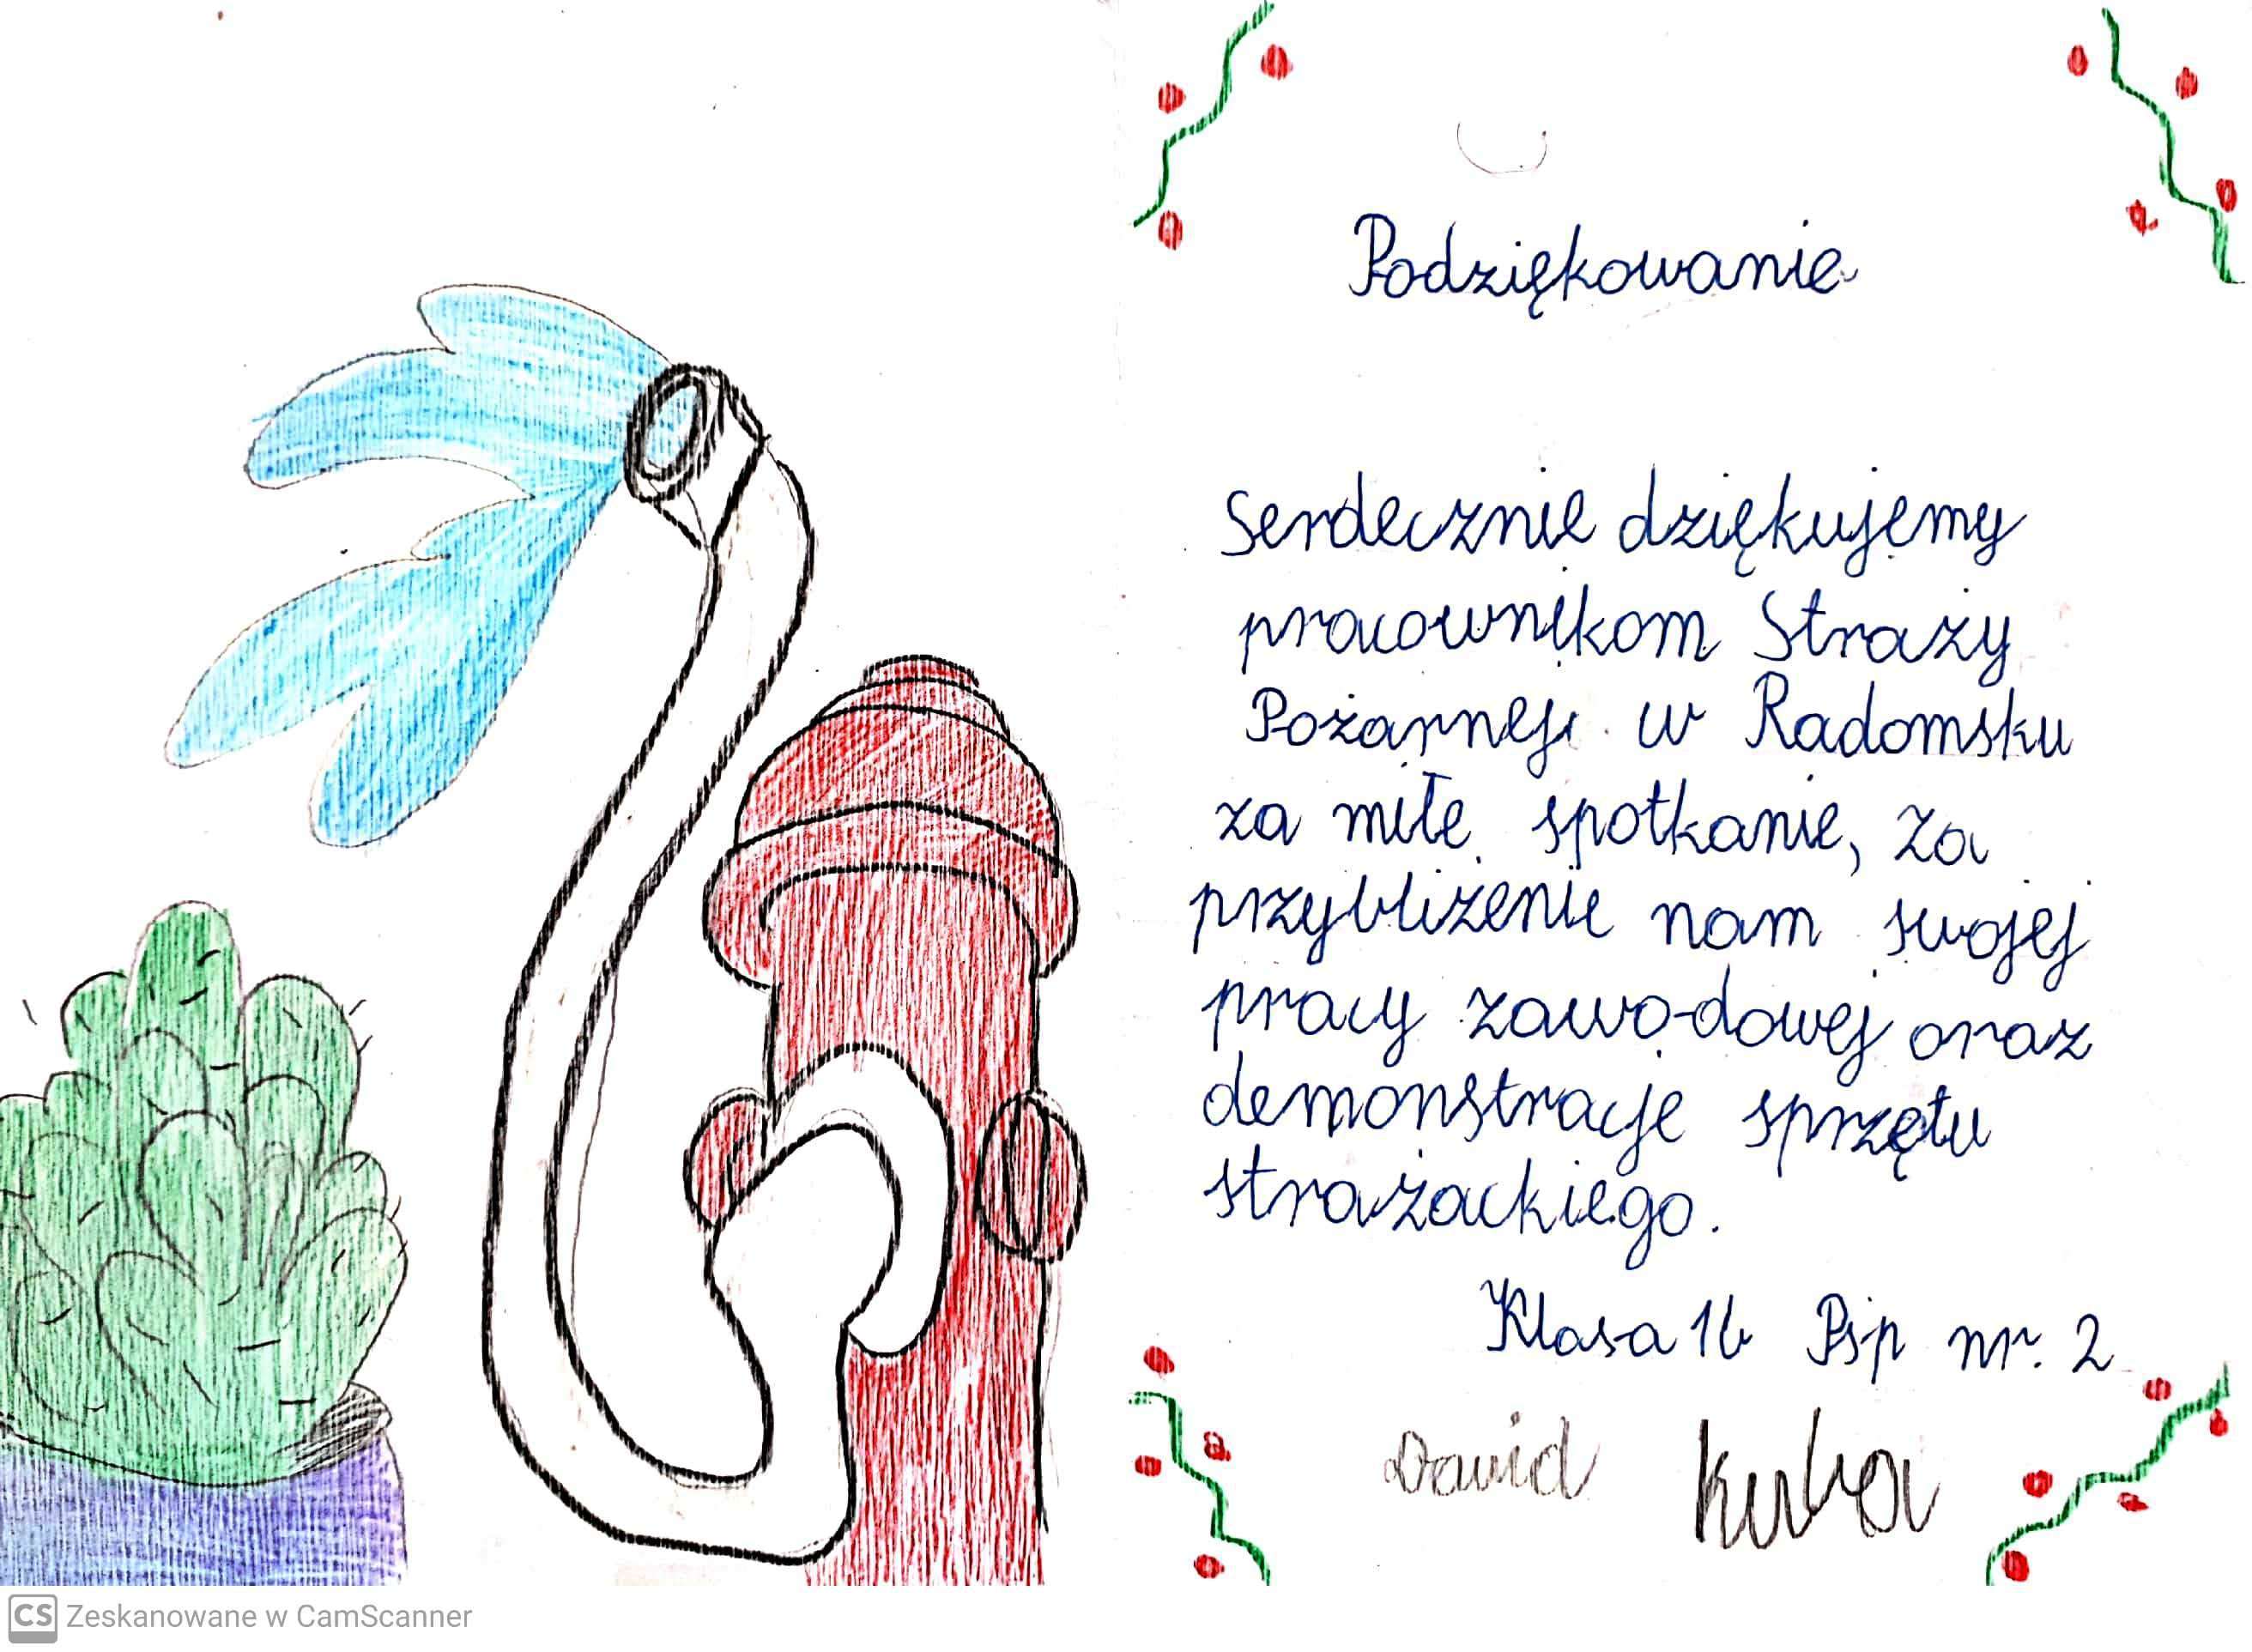 Podziękowanie
Serdecznie dziękujemy
pracownikom Straży
Pożarnej w Radomsku
za miłe spotkanie, za
przybliżenie nam swojej
pracy zawo-dowej oraz
demonstracje sprzętu
strażackiego.
Klasa 1b Psp nr. 2
Dawid Kuba
CS Zeskanowane w CamScanner